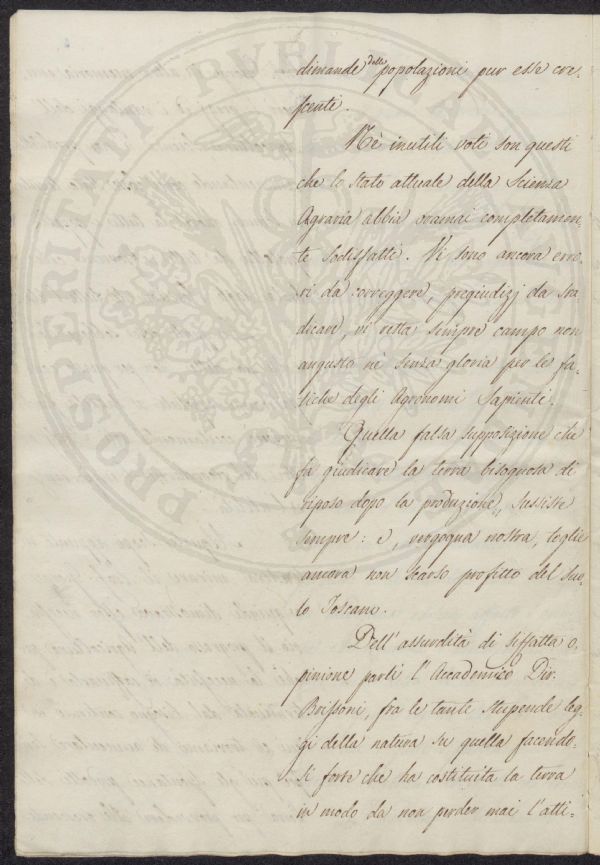 dimande delle popolazioni pur esse cre-
scenti.
Nè inutili voti son questi
che lo stato attuale della Scienza
Agraria abbia oramai completamen-
te sodisfatti. Vi sono ancora erro-
ri da correggere, pregiudizj da sra-
dicare, vi resta sempre campo non
angusto nè senza gloria per le fa-
tiche degli Agronomi Sapienti.
Quella falsa supposizione che
fa giudicare la terra bisognosa di
riposo dopo la produzione, sussiste
sempre: e, vergogna nostra, toglie
ancora non scarso profitto del suo-
lo Toscano.
Dell'assurdità di siffatta o-
pinione parti l'Accademico Dir.
fra le tante stupende leg-
gi della natura su quella facendo-
si forte che ha costituita la terra
in modo da non perder mai l'atti-
PROSPERITATI PUBLICAE